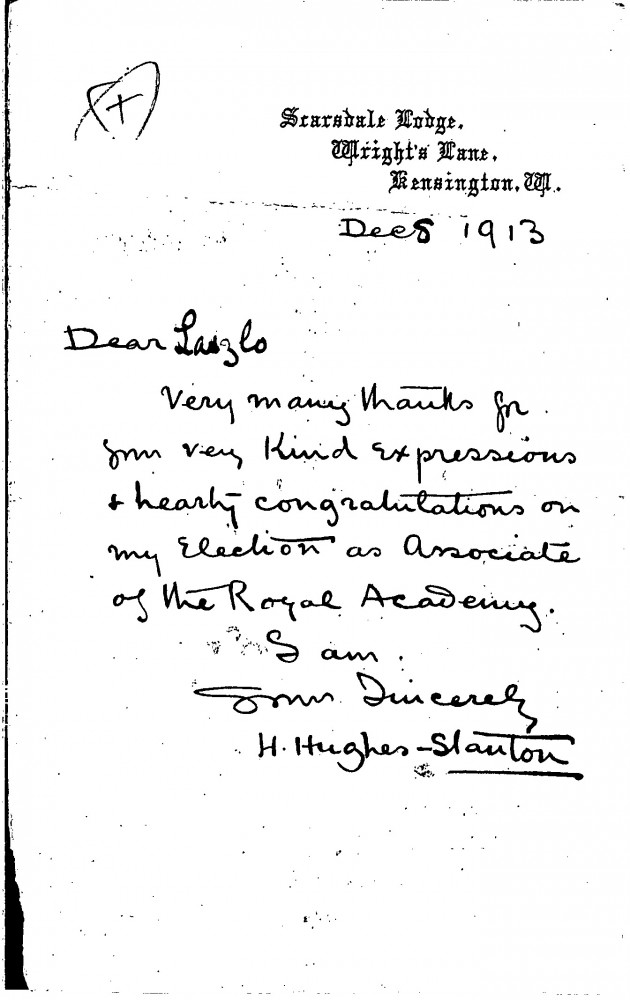 Scarsdale Lodge,
Wright's Lane,
Kensington, W.
Dec 8 1913
Dear Laszlo
Very many thanks for
your very kind expressions
& hearty congratulations on
my Election as Associate
of the Royal Academy.
I am.
Yours Sincerely
H. Hughes-Stanton